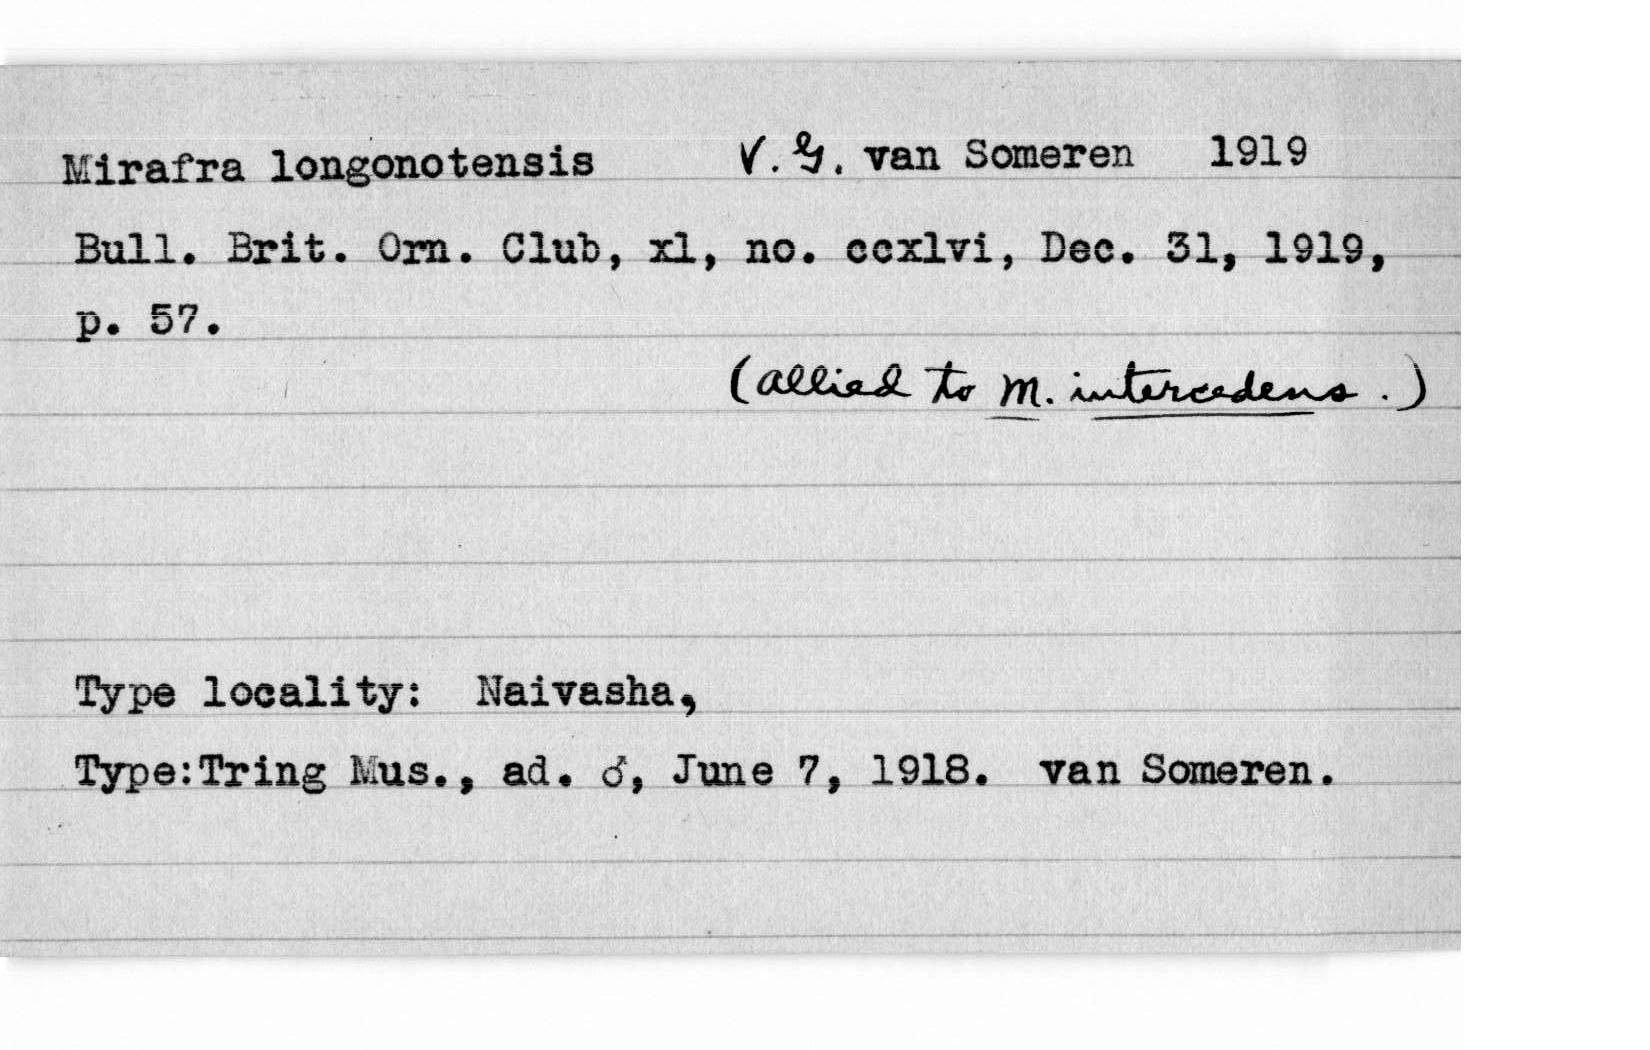 Mirafra longonotensis V. G. van Someren 1919
Bull. Brit. Orn. Club, xl, no. ccxlvi, Dec. 31, 1919,
p. 57.
(allied to M. intercedens.)
Type locality: Naivasha,
Type:Tring Mus., ad. ♂, June 7, 1918. van Someren.